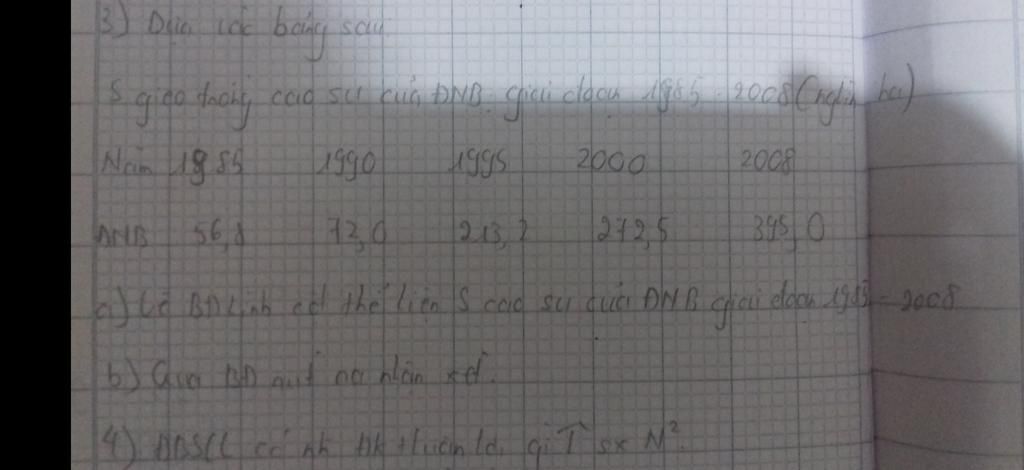 3) Dựa các bảng sau
S gieo trồng cao su của ĐNB giai đoạn 1985 - 2008 (nghìn ha)
Năm 1985 1990 1995 2000 2008
ĐNB 56,8 72,0 213,2 272,5 395,0
a) Vẽ BĐ hình cột thể hiện S cao su của ĐNB giai đoạn 1985 - 2008
b) Qua BĐ rút ra nhận xét.
4) ĐBSCL có ĐK thuận lợi gì sx N²